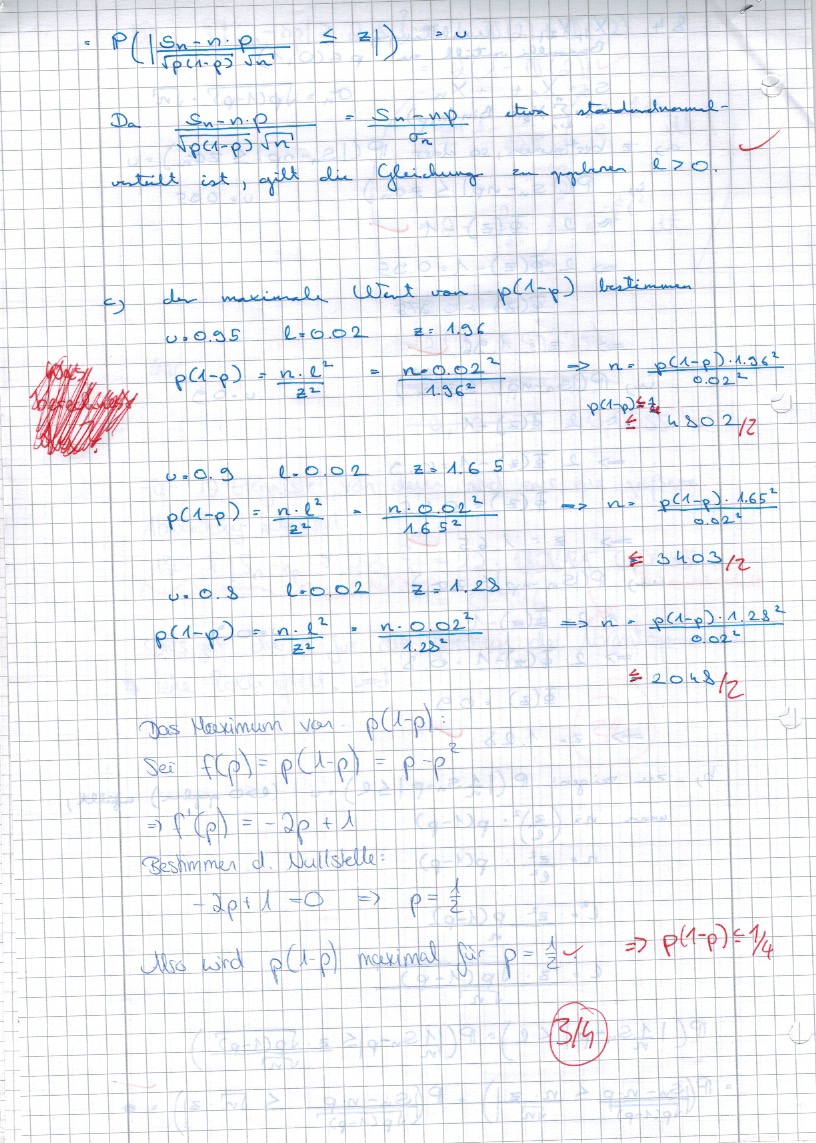 = P(|(Sₙ-n·p)/(√p(1-p) √n) ≤ z|) = u
Da (Sₙ-n·p)/(√p(1-p) √n) = (Sₙ-np)/σₙ etwa standardnormal-
verteilt ist, gilt die Gleichung zu gegebenem l > 0. ✓
c) den maximale Wert von p(1-p) bestimmen
u=0.95 l=0.02 z=1.96
p(1-p) = (n·l²)/z² = (n·0.02²)/1.96² => n = (p(1-p)·1.96²)/0.02²
≤ 4802/2
u=0.9 l=0.02 z=1.65
p(1-p) = (n·l²)/z² = (n·0.02²)/1.65² => n = (p(1-p)·1.65²)/0.02²
≤ 3403/2
u=0.8 l=0.02 z=1.28
p(1-p) = (n·l²)/z² = (n·0.02²)/1.28² => n = (p(1-p)·1.28²)/0.02²
≤ 2048/2
Das Maximum von p(1-p):
Sei f(p) = p(1-p) = p-p²
=> f'(p) = -2p + 1
Bestimmen d. Nullstelle:
-2p+1 = 0 => p = 1/2
Also wird p(1-p) maximal für p = 1/2 ✓ => p(1-p) ≤ 1/4
3/4